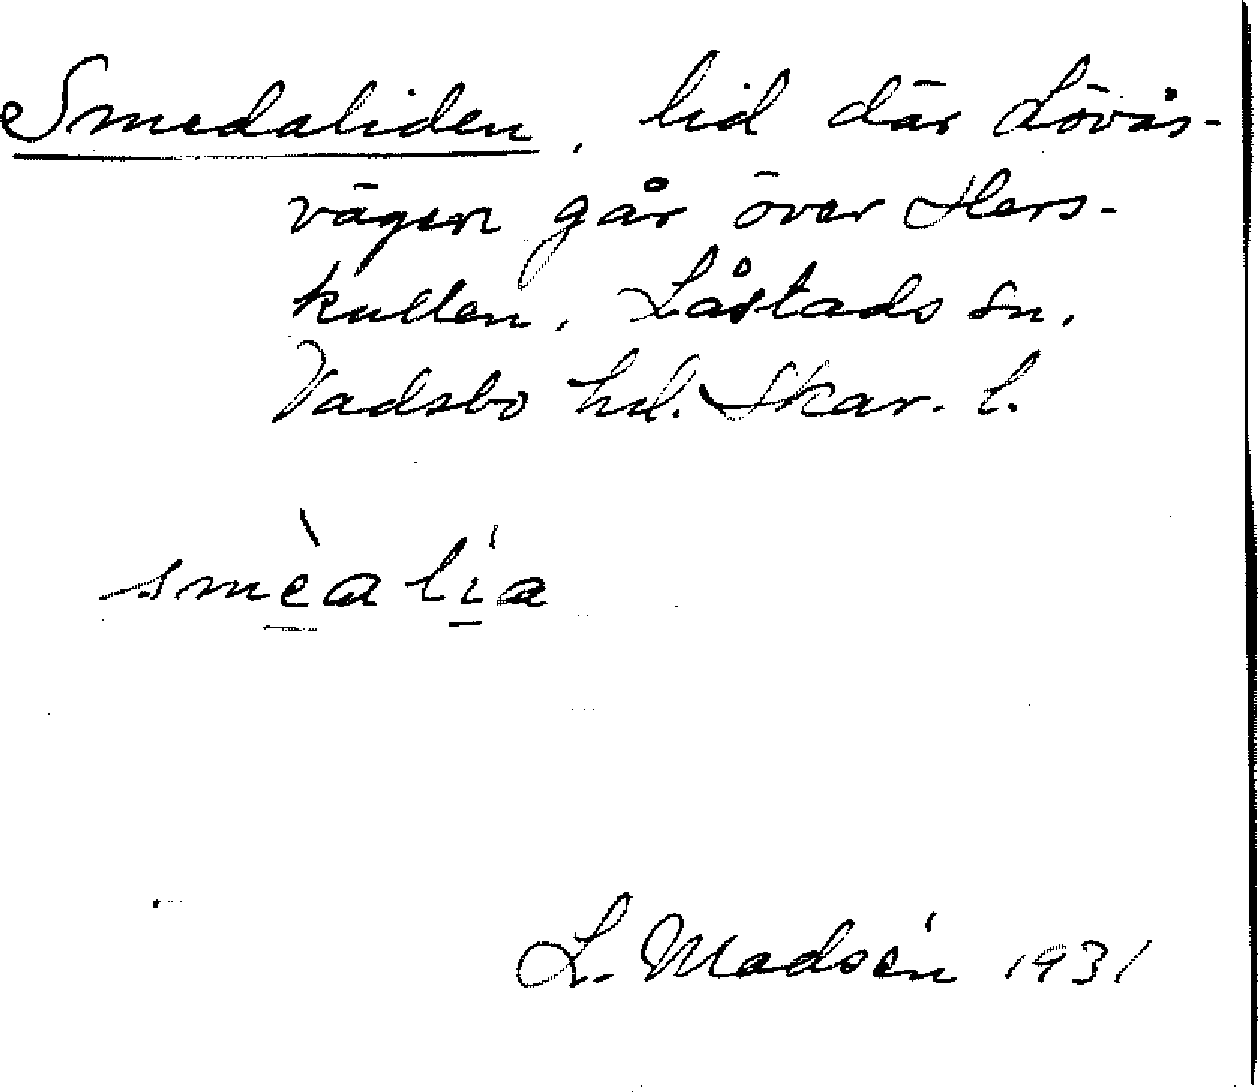 Smedaliden, lid där Lövås-
vägen går över Hers-
kullen. Låstads sn,
Vadsbo hd. Skar. l.
smèa lía
L. Madsén 1931